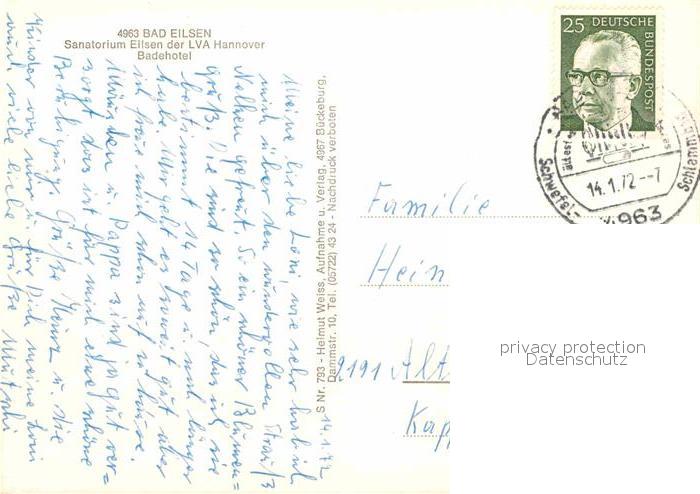 4963 BAD EILSEN
Sanatorium Eilsen der LVA Hannover
Badehotel
14.1.72
Meine liebe Loni, wie sehr hab ich
mich über den wundervollen Strauß
Nelken gefreut. So ein schöner Blumen=
gruß. Die sind so schön, daß ich sie
bestimmt 14 Tage u. noch länger
habe. Mir geht es soweit gut aber
ich freue mich schon auf zu Hause.
München u. Pappa sind ja gut ver=
sorgt das ist für mich eine schöne
Beruhigung. Grüße Heinz u. die
Kinder von mir u. für Dich meine Loni
auch viele liebe Grüße Mutti
S Nr. 793 - Helmut Weiss, Aufnahme u. Verlag, 4967 Bückeburg,
Dammstr. 10, Tel. (05722) 43 24 - Nachdruck verboten
25 DEUTSCHE BUNDESPOST
14.1.72--7
4963
Schwefel-
Schlamm
Familie
Hein
2191 Alt
Kap
privacy protection
Datenschutz